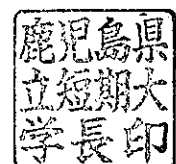 鹿児島県
立短期大
学長印